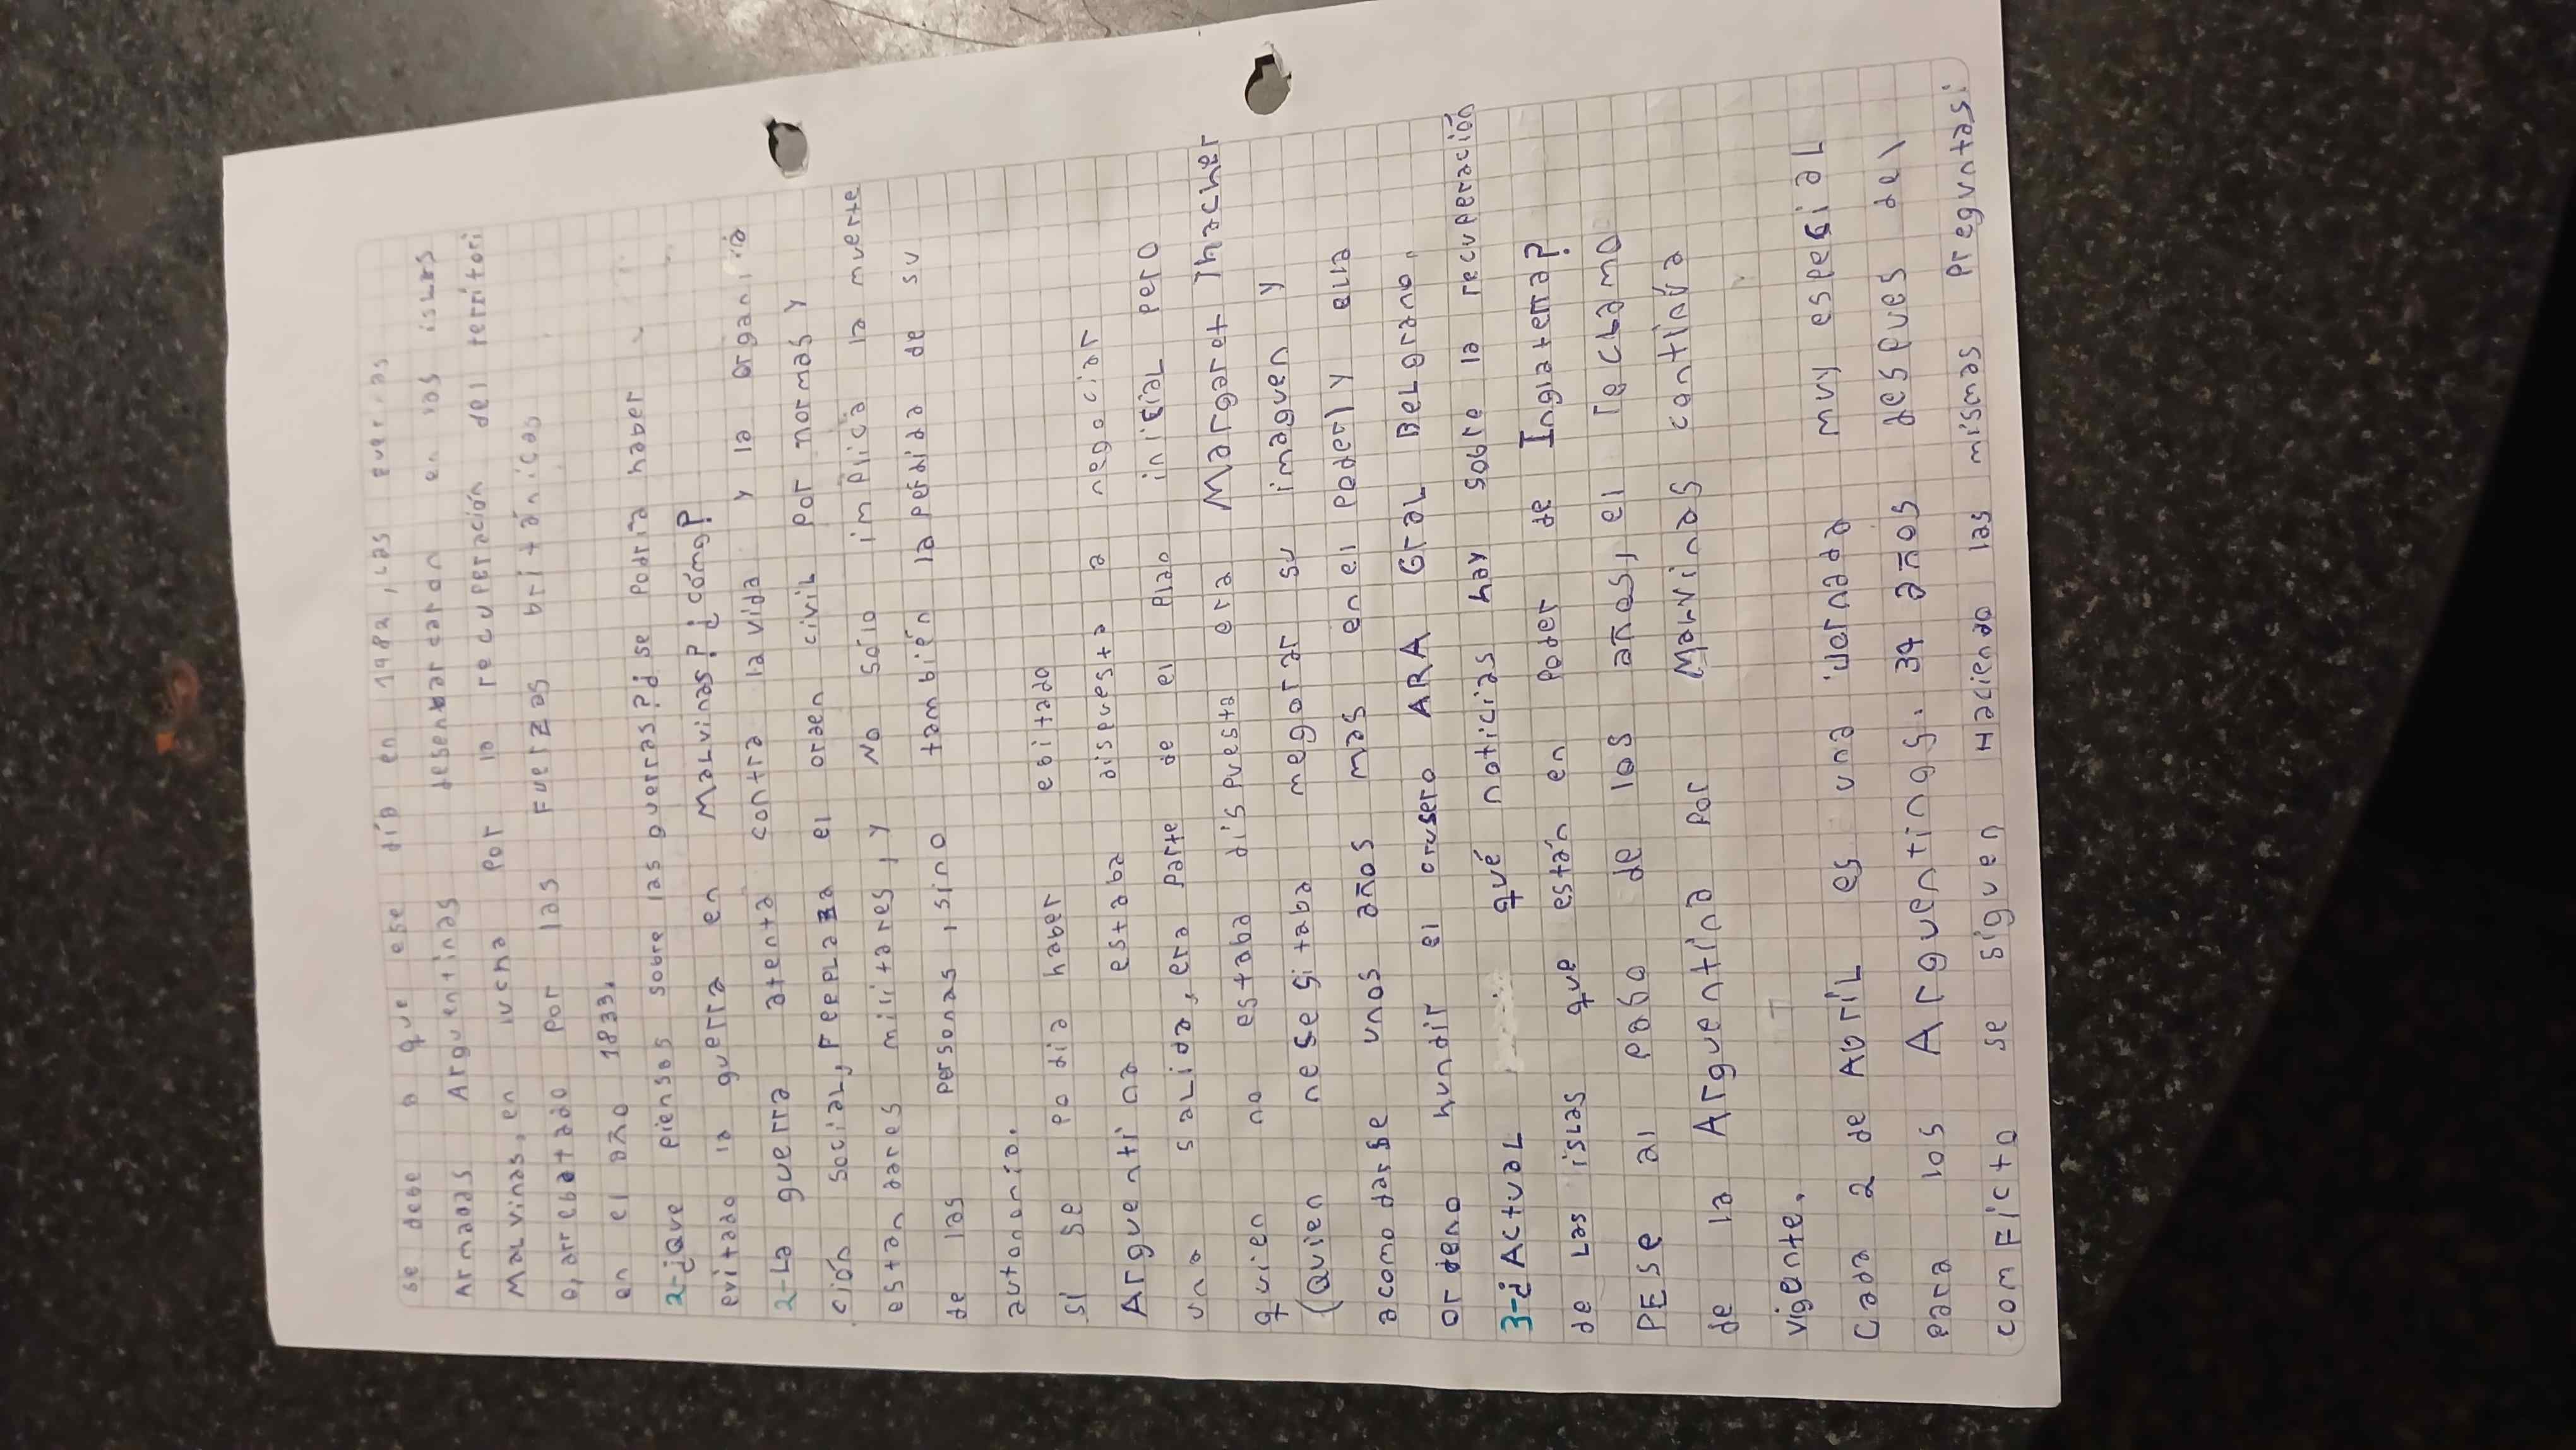 se debe a que ese día en 1982, Las fuerzas
Armadas Arguentinas desembarcaron en las islas
Malvinas, en lucha por la recuperación del territori
o, arrebatado por las Fuerzas británicas
en el año 1833.
2-¿Que piensas sobre las guerras? ¿ se podría haber
evitado la guerra en Malvinas? ¿cómo?
2-La guerra atenta contra la vida y la organi
ción social, reeplaza el orden civil por normas y
estandares militares, y No sólo implica la muerte
de las personas, sino también la pérdida de su
autonomía.
si se podia haber ebitado
Arguentina estaba dispuesta a negociar
una salida, era parte de el plan inicial pero
quien no estaba dispuesta era Margarot Thacher
(Quien nesesitaba megorar su imaguen y
acomodarse unos años mas en el poder) y ella
ordeno hundir el crusero ARA Gral Belgrano.
3-¿Actual qué noticias hay sobre la recuperación
de Las islas que están en poder de Inglaterra?
PESe al paso de los años, el reclamo
de la Arguentina por Malvinas continúa
vigente.
Cada 2 de Abril es una jornada muy espesial
para los Arguentinos. 34 años después del
comFicto se siguen Haciendo las mismas preguntas: